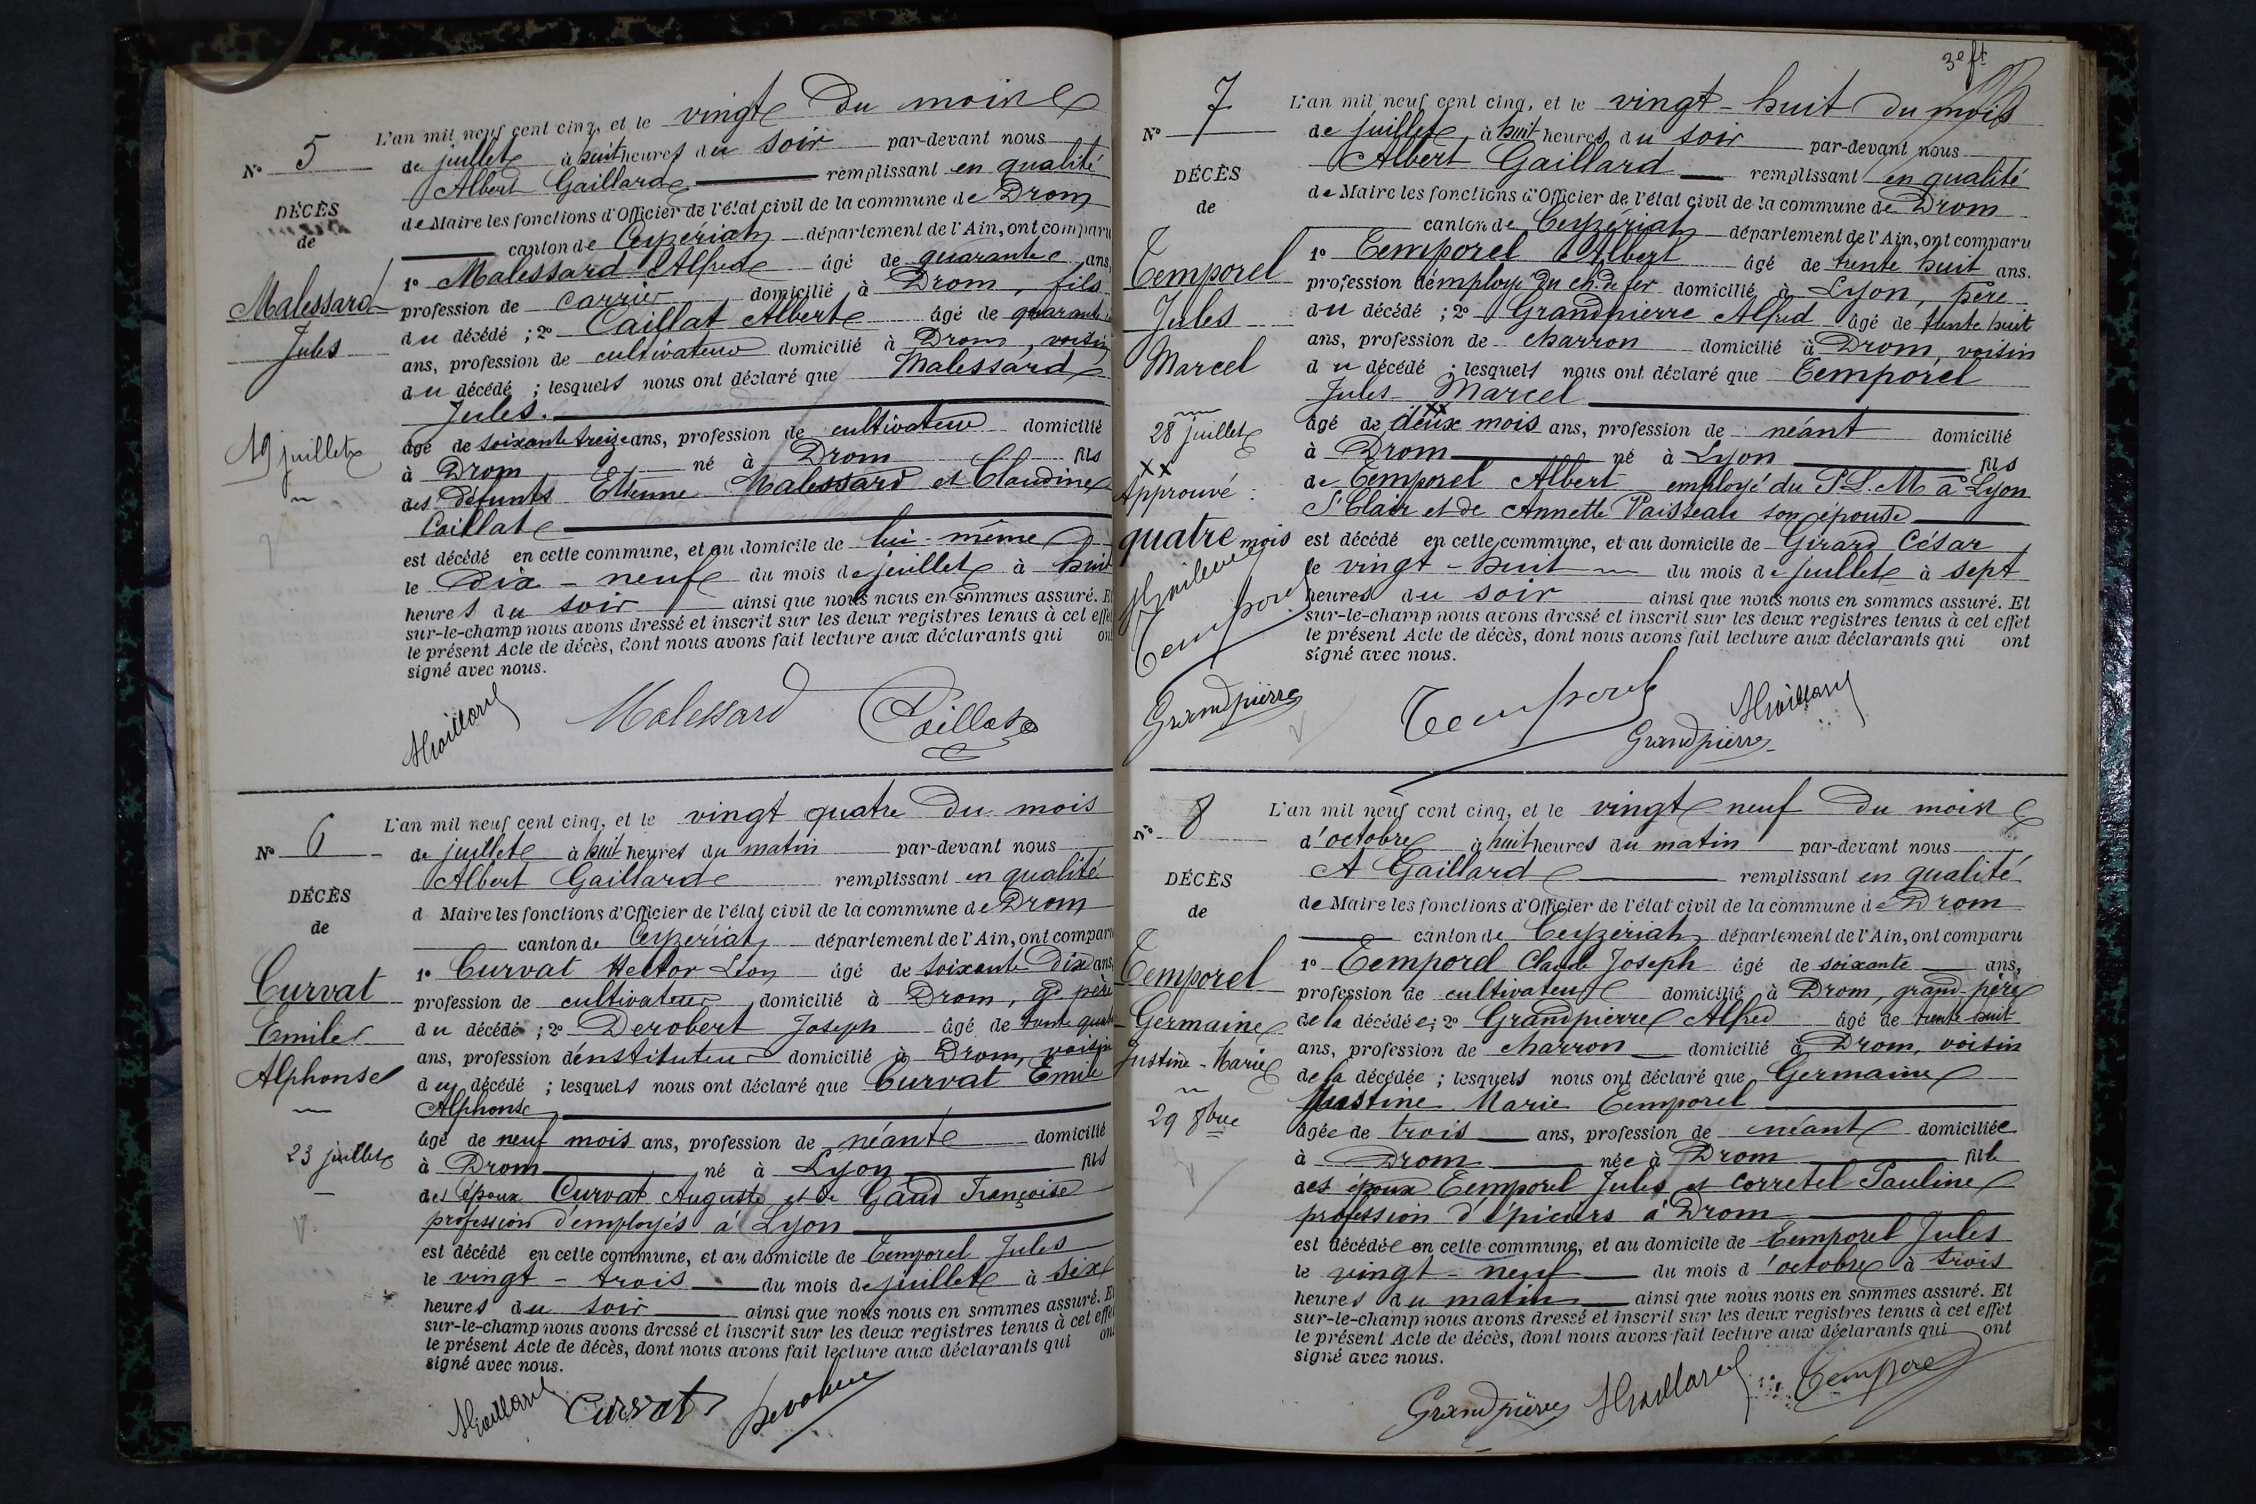 N° 5
DÉCÈS
de
Malessard
Jules
19 juillet
L'an mil neuf cent cinq, et le vingt du mois
de juillet à huit heures du soir par-devant nous
Albert Gaillard remplissant en qualité
de Maire les fonctions d'Officier de l'état civil de la commune de Drom
canton de Ceyzériat département de l'Ain, ont comparu
1° Malessard Alfred âgé de quarante ans,
profession de carrier domicilié à Drom, fils
du décédé ; 2° Caillat Albert âgé de quarante
ans, profession de cultivateur domicilié à Drom, voisin
du décédé ; lesquels nous ont déclaré que Malessard
Jules.
âgé de soixante treize ans, profession de cultivateur domicilié
à Drom né à Drom fils
des défunts Etienne Malessard et Claudine
Caillat
est décédé en cette commune, et au domicile de lui-même
le dix-neuf du mois de juillet à huit
heures du soir ainsi que nous nous en sommes assuré. Et
sur-le-champ nous avons dressé et inscrit sur les deux registres tenus à cet effet
le présent Acte de décès, dont nous avons fait lecture aux déclarants qui ont
signé avec nous.
AGaillard Malessard Caillat
N° 6
DÉCÈS
de
Curvat
Emile
Alphonse
23 juillet
L'an mil neuf cent cinq, et le vingt quatre du mois
de juillet à huit heures du matin par-devant nous
Albert Gaillard remplissant en qualité
d Maire les fonctions d'Officier de l'état civil de la commune de Drom
canton de Ceyzériat département de l'Ain, ont comparu
1° Curvat Hector Léon âgé de soixante dix ans,
profession de cultivateur domicilié à Drom, gd père
du décédé ; 2° Derobert Joseph âgé de trente quatre
ans, profession d'instituteur domicilié à Drom, voisin
du décédé ; lesquels nous ont déclaré que Curvat Emile
Alphonse
âgé de neuf mois ans, profession de néant domicilié
à Drom né à Lyon fils
des époux Curvat Auguste et de Gaud Françoise
profession d'employés à Lyon
est décédé en cette commune, et au domicile de Temporel Jules
le vingt-trois du mois de juillet à six
heures du soir ainsi que nous nous en sommes assuré. Et
sur-le-champ nous avons dressé et inscrit sur les deux registres tenus à cet effet
le présent Acte de décès, dont nous avons fait lecture aux déclarants qui ont
signé avec nous.
AGaillard Curvat Derobert
3e ft
N° 7
DÉCÈS
de
Temporel
Jules
Marcel
28 juillet
xx
Approuvé :
quatre mois
AGaillard
Temporel
Grandpierre
L'an mil neuf cent cinq, et le vingt-huit du mois
de juillet à huit heures du soir par-devant nous
Albert Gaillard remplissant en qualité
de Maire les fonctions d'Officier de l'état civil de la commune de Drom
canton de Ceyzériat département de l'Ain, ont comparu
1° Temporel Albert âgé de trente huit ans.
profession d'employé du ch. de fer domicilié à Lyon, père
du décédé ; 2° Grandpierre Alfred âgé de trente huit
ans, profession de charron domicilié à Drom, voisin
du décédé ; lesquels nous ont déclaré que Temporel
Jules Marcel
xx
âgé de deux mois ans, profession de néant domicilié
à Drom né à Lyon fils
de Temporel Albert employé du P.L.M à Lyon
St Clair et de Annette son épouse
est décédé en cette commune, et au domicile de Girard César
le vingt-huit du mois de juillet à sept
heures du soir ainsi que nous nous en sommes assuré. Et
sur-le-champ nous avons dressé et inscrit sur les deux registres tenus à cet effet
le présent Acte de décès, dont nous avons fait lecture aux déclarants qui ont
signé avec nous.
Temporel Grandpierre AGaillard
N° 8
DÉCÈS
de
Temporel
Germaine
Justine-Marie
29 8bre
L'an mil neuf cent cinq, et le vingt neuf du mois
d'octobre à huit heures du matin par-devant nous
A Gaillard remplissant en qualité
de Maire les fonctions d'Officier de l'état civil de la commune de Drom
canton de Ceyzériat département de l'Ain, ont comparu
1° Temporel Claude Joseph âgé de soixante ans,
profession de cultivateur domicilié à Drom, grand-père
de la décédée ; 2° Grandpierre Alfred âgé de trente huit
ans, profession de charron domicilié à Drom, voisin
de la décédée ; lesquels nous ont déclaré que Germaine
Justine Marie Temporel
âgée de trois ans, profession de néant domiciliée
à Drom née à Drom fille
des époux Temporel Jules et Corretel Pauline
profession d'épiciers à Drom
est décédée en cette commune, et au domicile de Temporel Jules
le vingt-neuf du mois d'octobre à trois
heures du matin ainsi que nous nous en sommes assuré. Et
sur-le-champ nous avons dressé et inscrit sur les deux registres tenus à cet effet
le présent Acte de décès, dont nous avons fait lecture aux déclarants qui ont
signé avec nous.
Grandpierre AGaillard Temporel